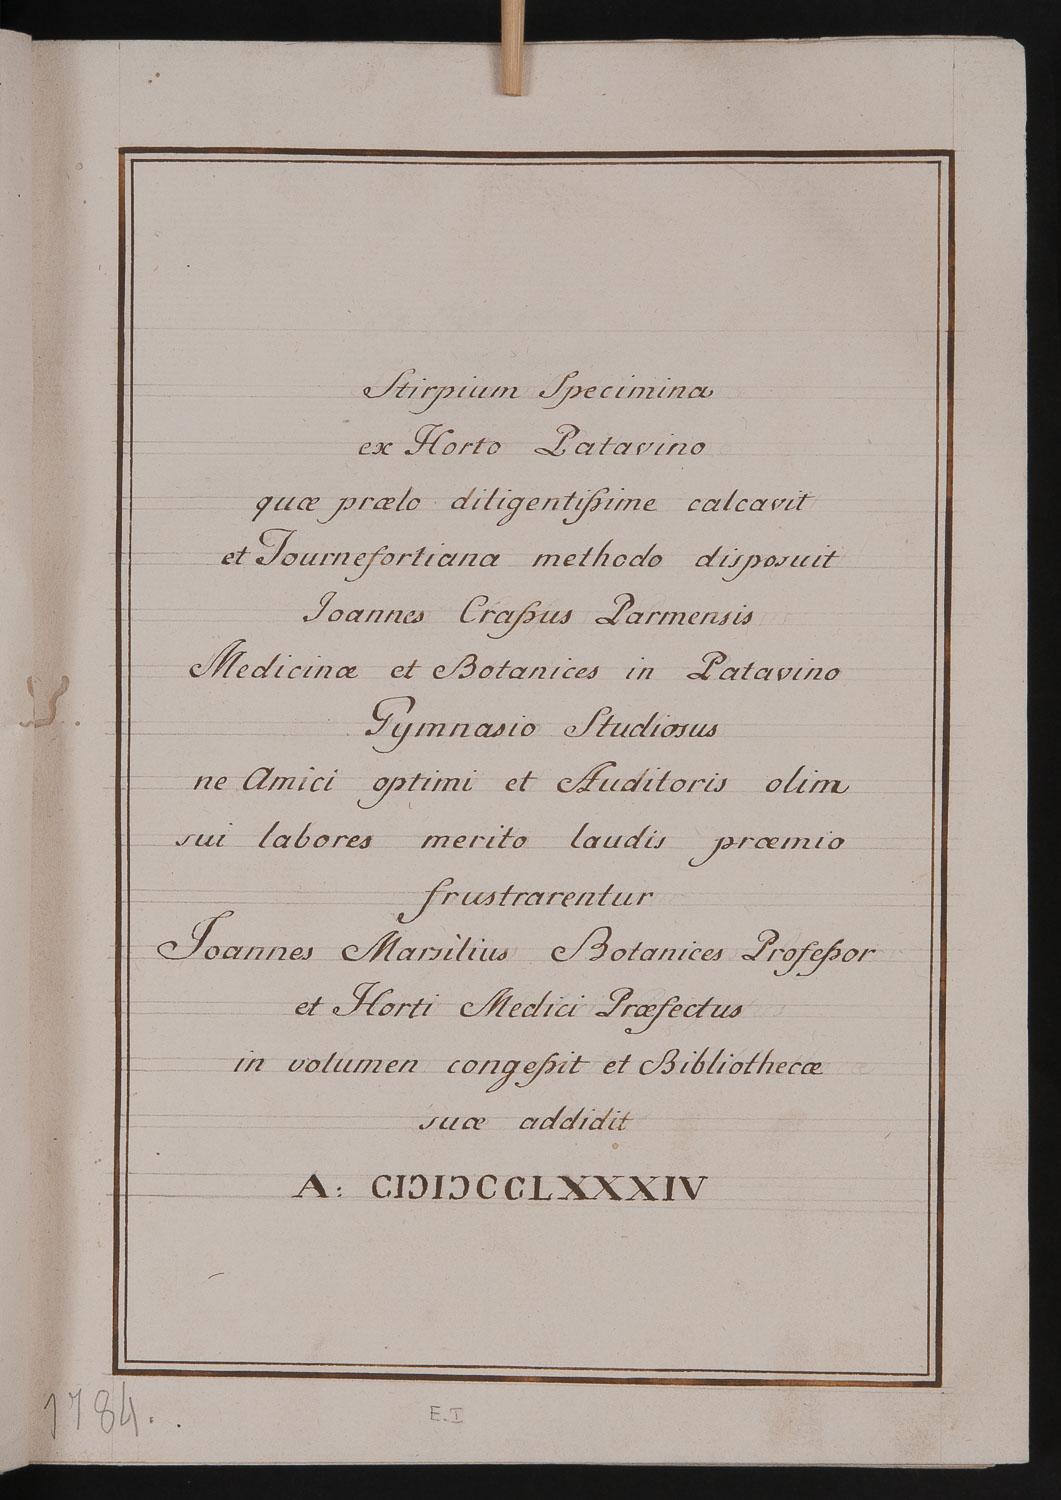 Stirpium Specimina
ex Horto Patavino
quæ prælo diligentißime calcavit
et Tournefortiana methodo disposuit
Ioannes Craßus Parmensis
Medicinæ et Botanices in Patavino
Gymnasio Studiosus
ne Amici optimi et Auditoris olim
sui labores merito laudis præmio
frustrarentur
Joannes Marsilius Botanices Profeßor
et Horti Medici Præfectus
in volumen congeßit et Bibliothecæ
suæ addidit
A: CIƆIƆCCLXXXIV
1784.
E.I